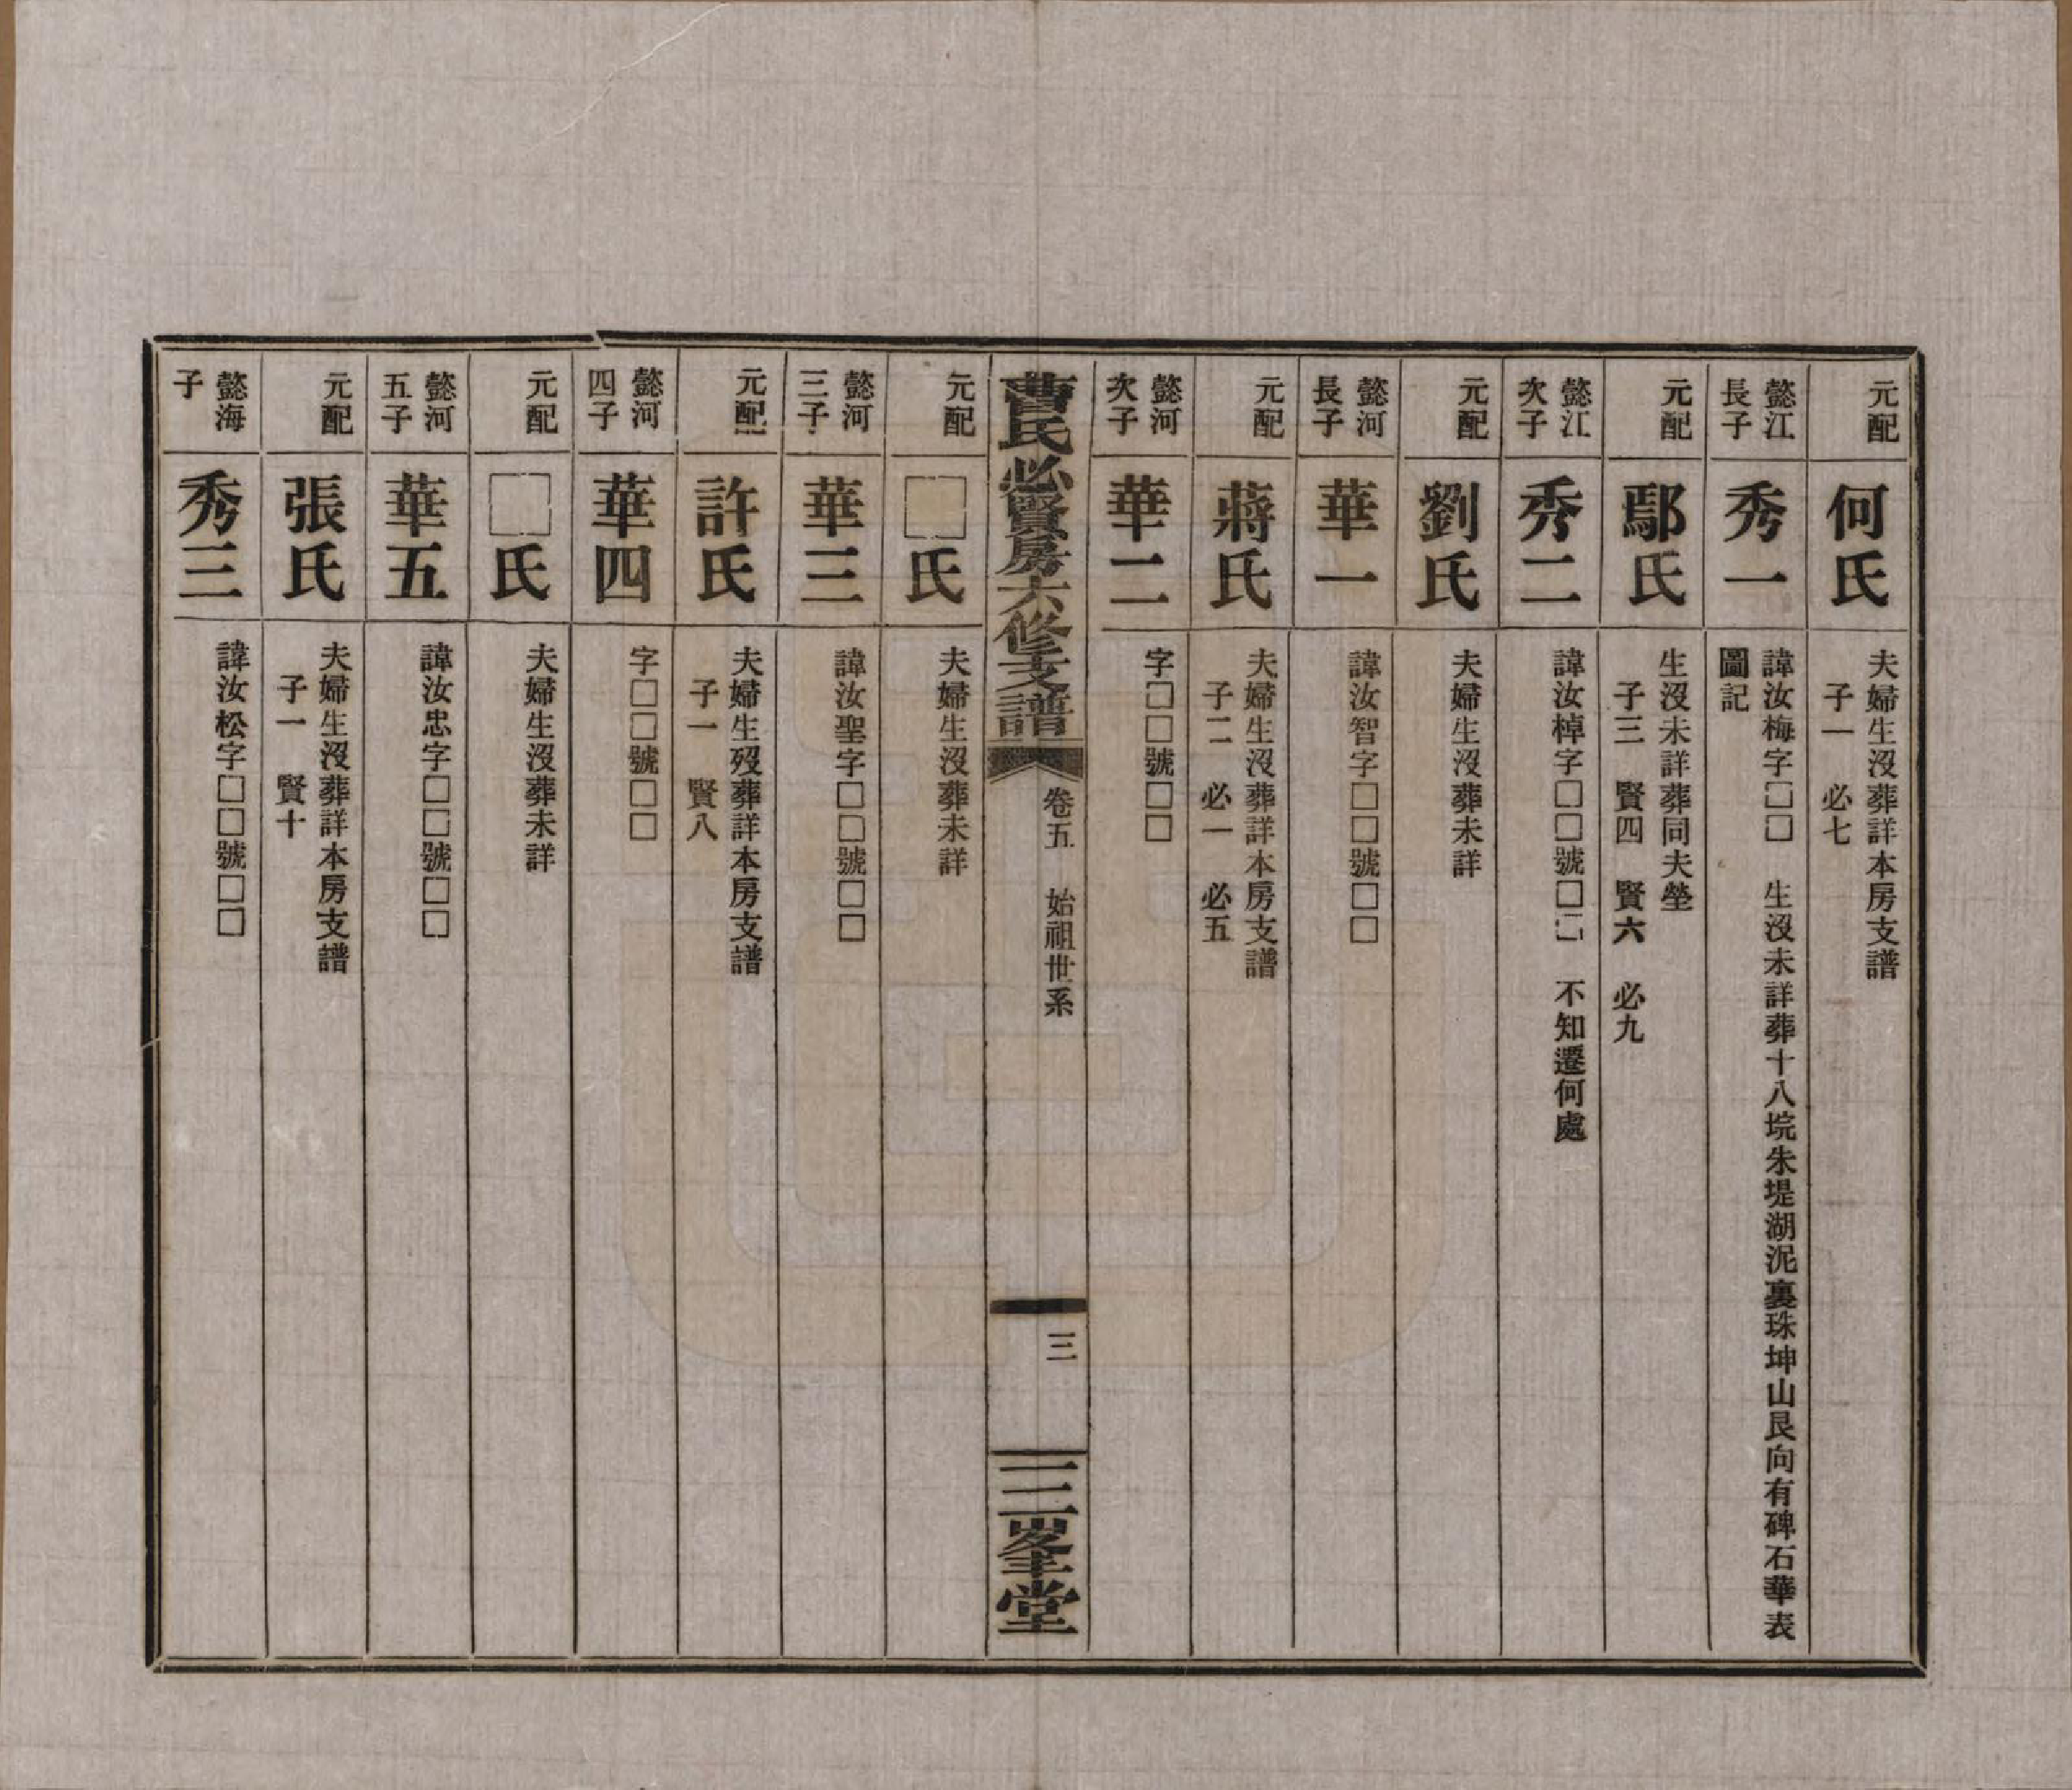 元配
何氏
夫婦生沒葬詳本房支譜
子一　必七
懿江
長子
秀一
諱汝梅字□□　生沒未詳葬十八垸朱堤湖泥裏珠坤山艮向有碑石華表
圖記
元配
鄢氏
生沒未詳葬同夫塋
子三　賢四　賢六　必九
懿江
次子
秀二
諱汝棹字□□號□□　不知遷何處
元配
劉氏
夫婦生沒葬未詳
懿河
長子
華一
諱汝智字□□號□□
元配
蔣氏
夫婦生沒葬詳本房支譜
子二　必一　必五
懿河
次子
華二
字□□號□□
曹氏必賢房六修支譜
卷五　始祖世系
三
三峯堂
元配
□氏
夫婦生沒葬未詳
懿河
三子
華三
諱汝聖字□□號□□
元配
許氏
夫婦生歿葬詳本房支譜
子一　賢八
懿河
四子
華四
字□□號□□
元配
□氏
夫婦生沒葬未詳
懿河
五子
華五
諱汝忠字□□號□□
元配
張氏
夫婦生沒葬詳本房支譜
子一　賢十
懿海
子
秀三
諱汝松字□□號□□